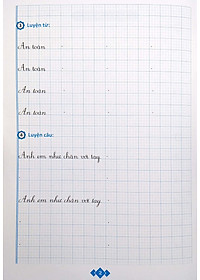 Luyện từ:
An toàn
An toàn
An toàn
An toàn
Luyện câu:
Anh em như chân với tay
Anh em như chân với tay